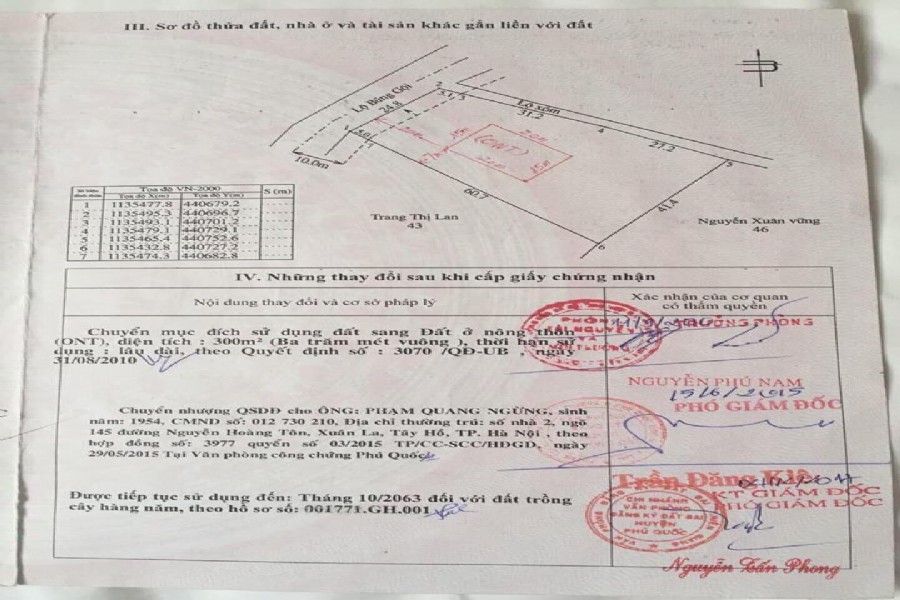 III. Sơ đồ thửa đất, nhà ở và tài sản khác gắn liền với đất
Lộ Búng Gội
24.8
2
5.1
3
Lộ xóm
31.2
4
27.2
5
1
5.0
7
10.0m
20m
15m
(ONT)
20m
15m
60.7
41.4
6
Trang Thị Lan
43
Nguyễn Xuân vững
46
Số hiệu đỉnh thửa
Tọa độ VN-2000
S (m)
Tọa độ X(m) Tọa độ Y(m)
1 1135477.8 440679.2
2 1135495.3 440696.7
3 1135493.1 440701.2
4 1135479.1 440729.1
5 1135465.4 440752.6
6 1135432.8 440727.2
7 1135474.3 440682.8
IV. Những thay đổi sau khi cấp giấy chứng nhận
Nội dung thay đổi và cơ sở pháp lý
Xác nhận của cơ quan
có thẩm quyền
Chuyển mục đích sử dụng đất sang Đất ở nông thôn
(ONT), diện tích : 300m² (Ba trăm mét vuông ), thời hạn sử
dụng : lâu dài, theo Quyết định số : 3070 /QĐ-UB , ngày
31/08/2010
TRƯỞNG PHÒNG
PHÒNG
TÀI NGUYÊN
VÀ
MÔI TRƯỜNG
NGUYỄN PHÚ NAM
15/6/2015
PHÓ GIÁM ĐỐC
Chuyển nhượng QSDĐ cho ÔNG: PHẠM QUANG NGỪNG, sinh
năm: 1954, CMND số: 012 730 210, Địa chỉ thường trú: số nhà 2, ngõ
145 đường Nguyễn Hoàng Tôn, Xuân La, Tây Hồ, TP. Hà Nội , theo
hợp đồng số: 3977 quyển số 03/2015 TP/CC-SCC/HĐGD, ngày
29/05/2015 Tại Văn phòng công chứng Phú Quốc
Trần Đăng Kiê
KT GIÁM ĐỐC
PHÓ GIÁM ĐỐC
Được tiếp tục sử dụng đến: Tháng 10/2063 đối với đất trồng
cây hàng năm, theo hồ sơ số: 001771.GH.001
CHI NHÁNH
VĂN PHÒNG
ĐĂNG KÝ ĐẤT ĐAI
HUYỆN
PHÚ QUỐC
Nguyễn Tấn Phong